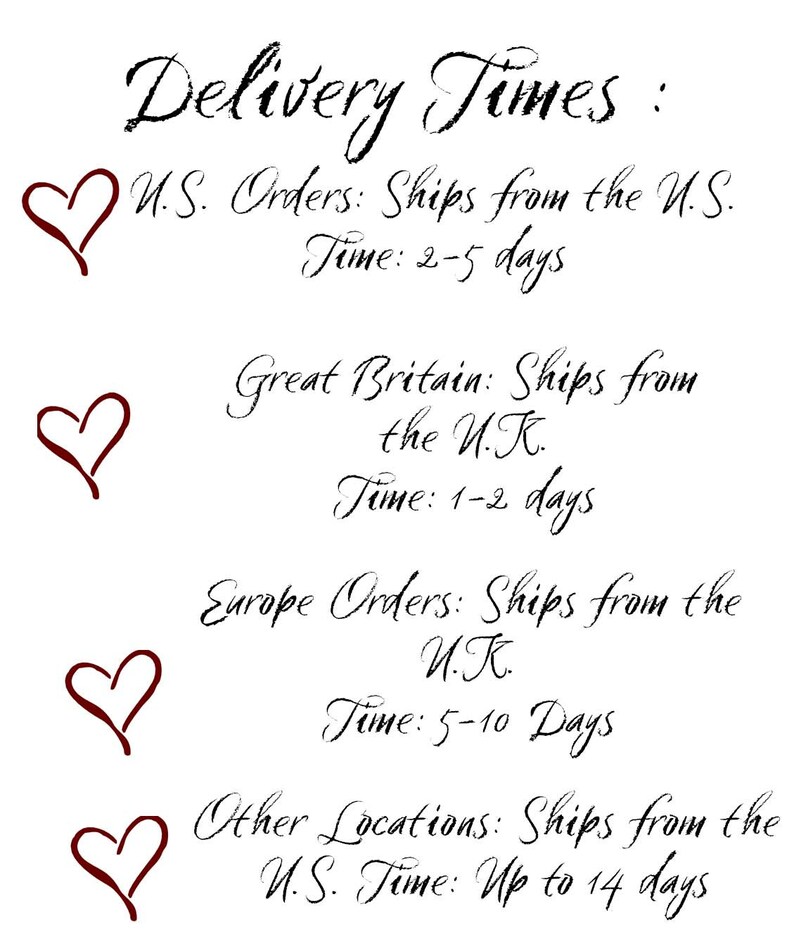 Delivery Times :
U.S. Orders: Ships from the U.S.
Time: 2-5 days
Great Britain: Ships from
the U.K.
Time: 1-2 days
Europe Orders: Ships from the
U.K.
Time: 5-10 Days
Other Locations: Ships from the
U.S. Time: Up to 14 days